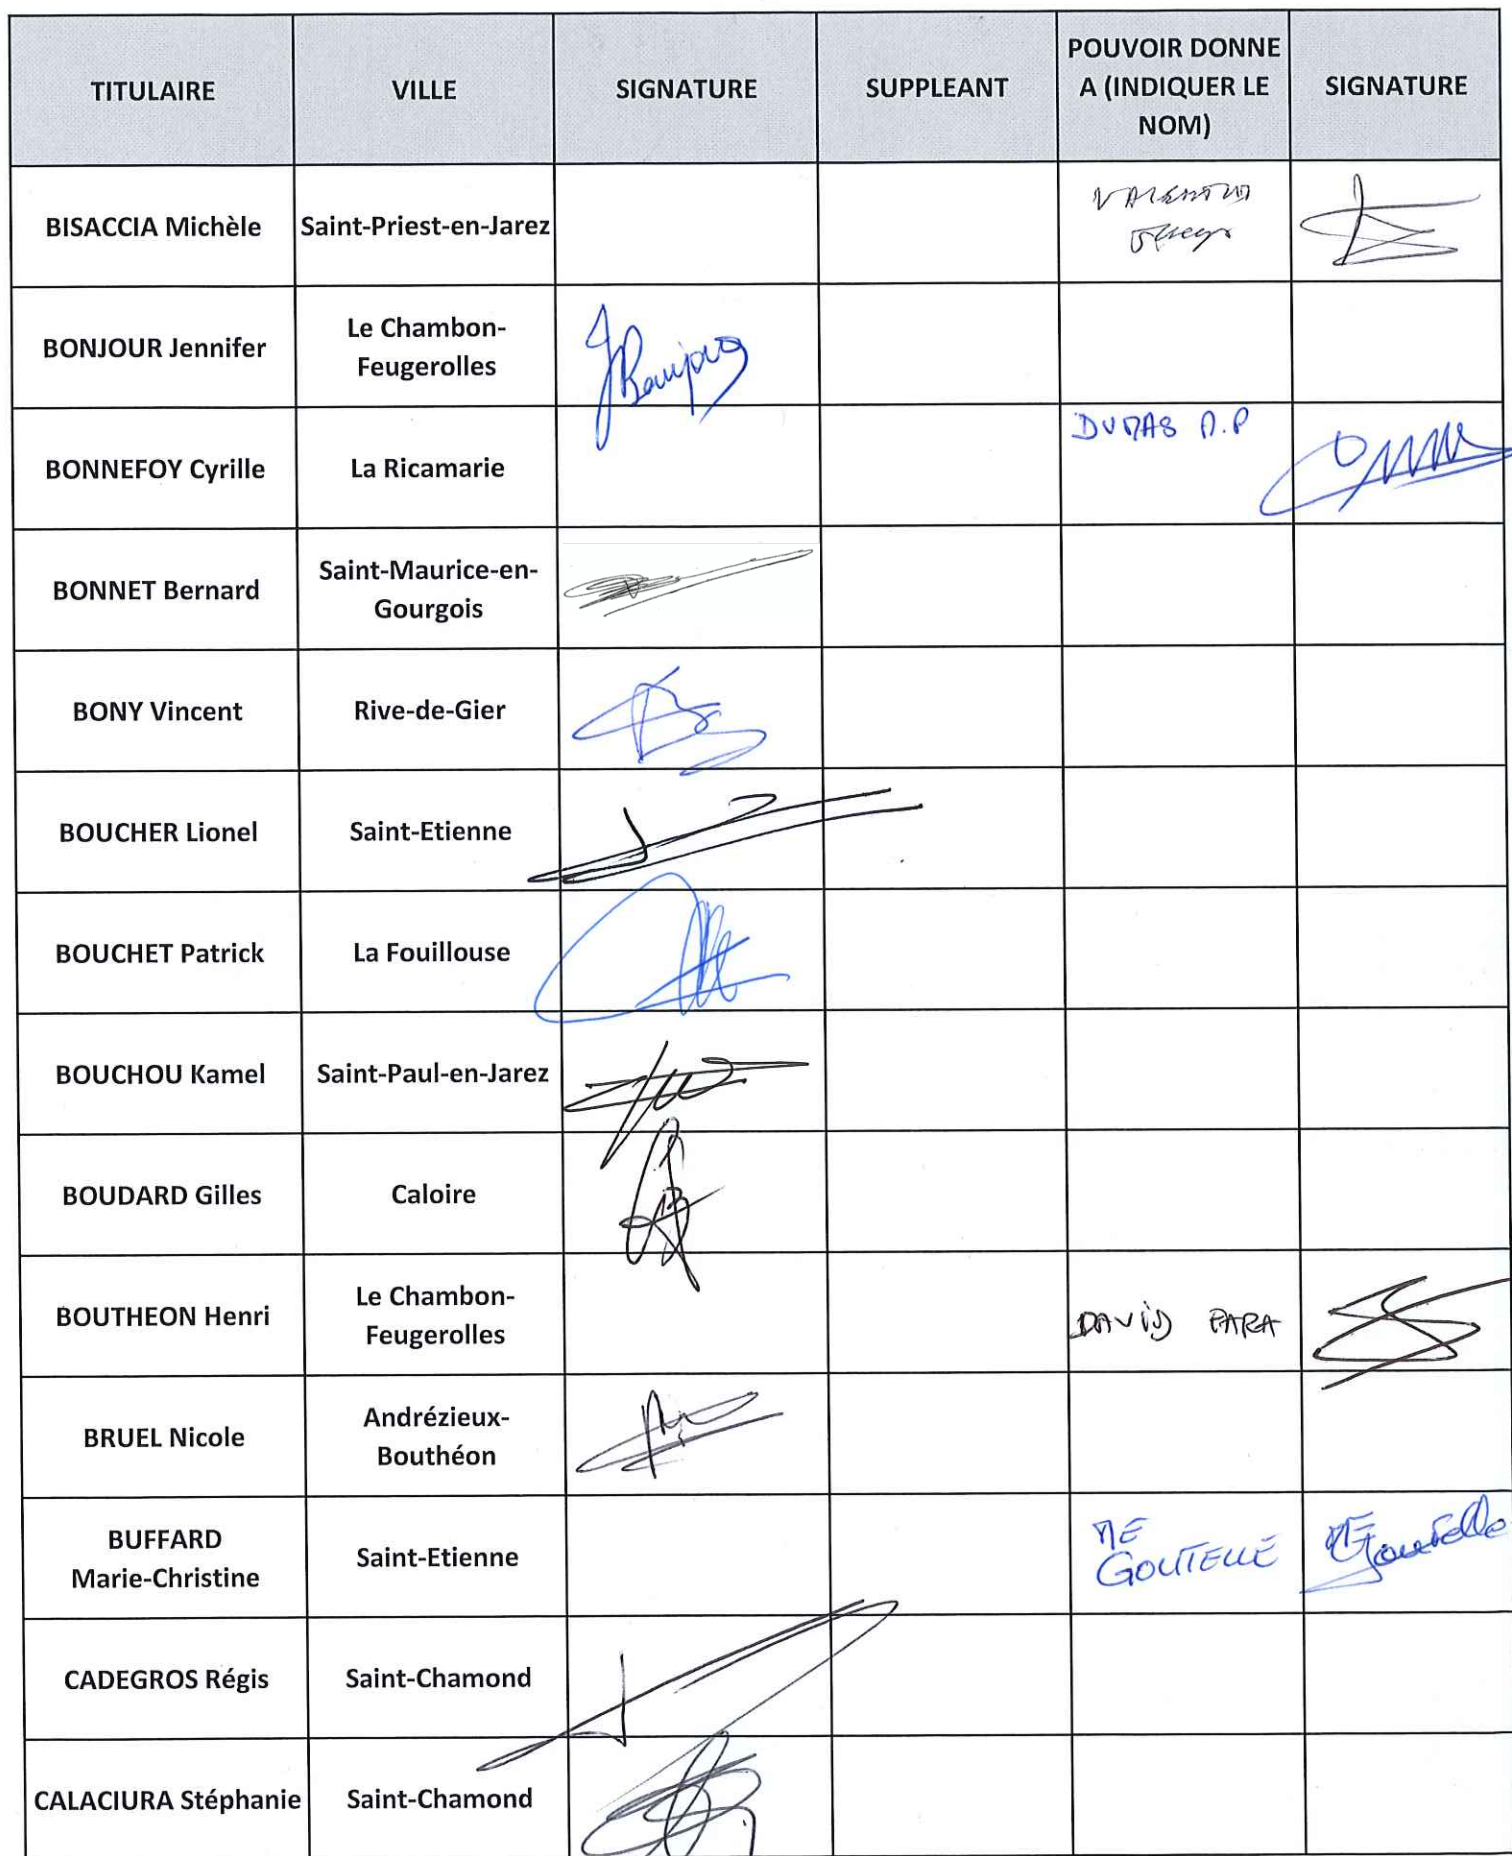 TITULAIRE
VILLE
SIGNATURE
SUPPLEANT
POUVOIR DONNE
A (INDIQUER LE
NOM)
SIGNATURE
BISACCIA Michèle
Saint-Priest-en-Jarez
BONJOUR Jennifer
Le Chambon-
Feugerolles
BONNEFOY Cyrille
La Ricamarie
DUMAS
BONNET Bernard
Saint-Maurice-en-
Gourgois
BONY Vincent
Rive-de-Gier
BOUCHER Lionel
Saint-Etienne
BOUCHET Patrick
La Fouillouse
BOUCHOU Kamel
Saint-Paul-en-Jarez
BOUDARD Gilles
Caloire
BOUTHEON Henri
Le Chambon-
Feugerolles
DAVID FARA
BRUEL Nicole
Andrézieux-
Bouthéon
BUFFARD
Marie-Christine
Saint-Etienne
ME
GOUTELLE
CADEGROS Régis
Saint-Chamond
CALACIURA Stéphanie
Saint-Chamond